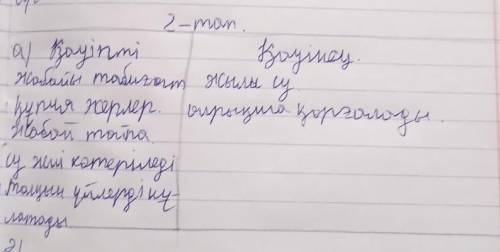 2-топ.
а) Қауіпті Қауіпсіз.
жабайы табиғат жылы су
құпия жерлер. алғысша қорғалады.
Жабай тайпа.
су жиі көтеріледі
толқын үйлерді құ-
латады.